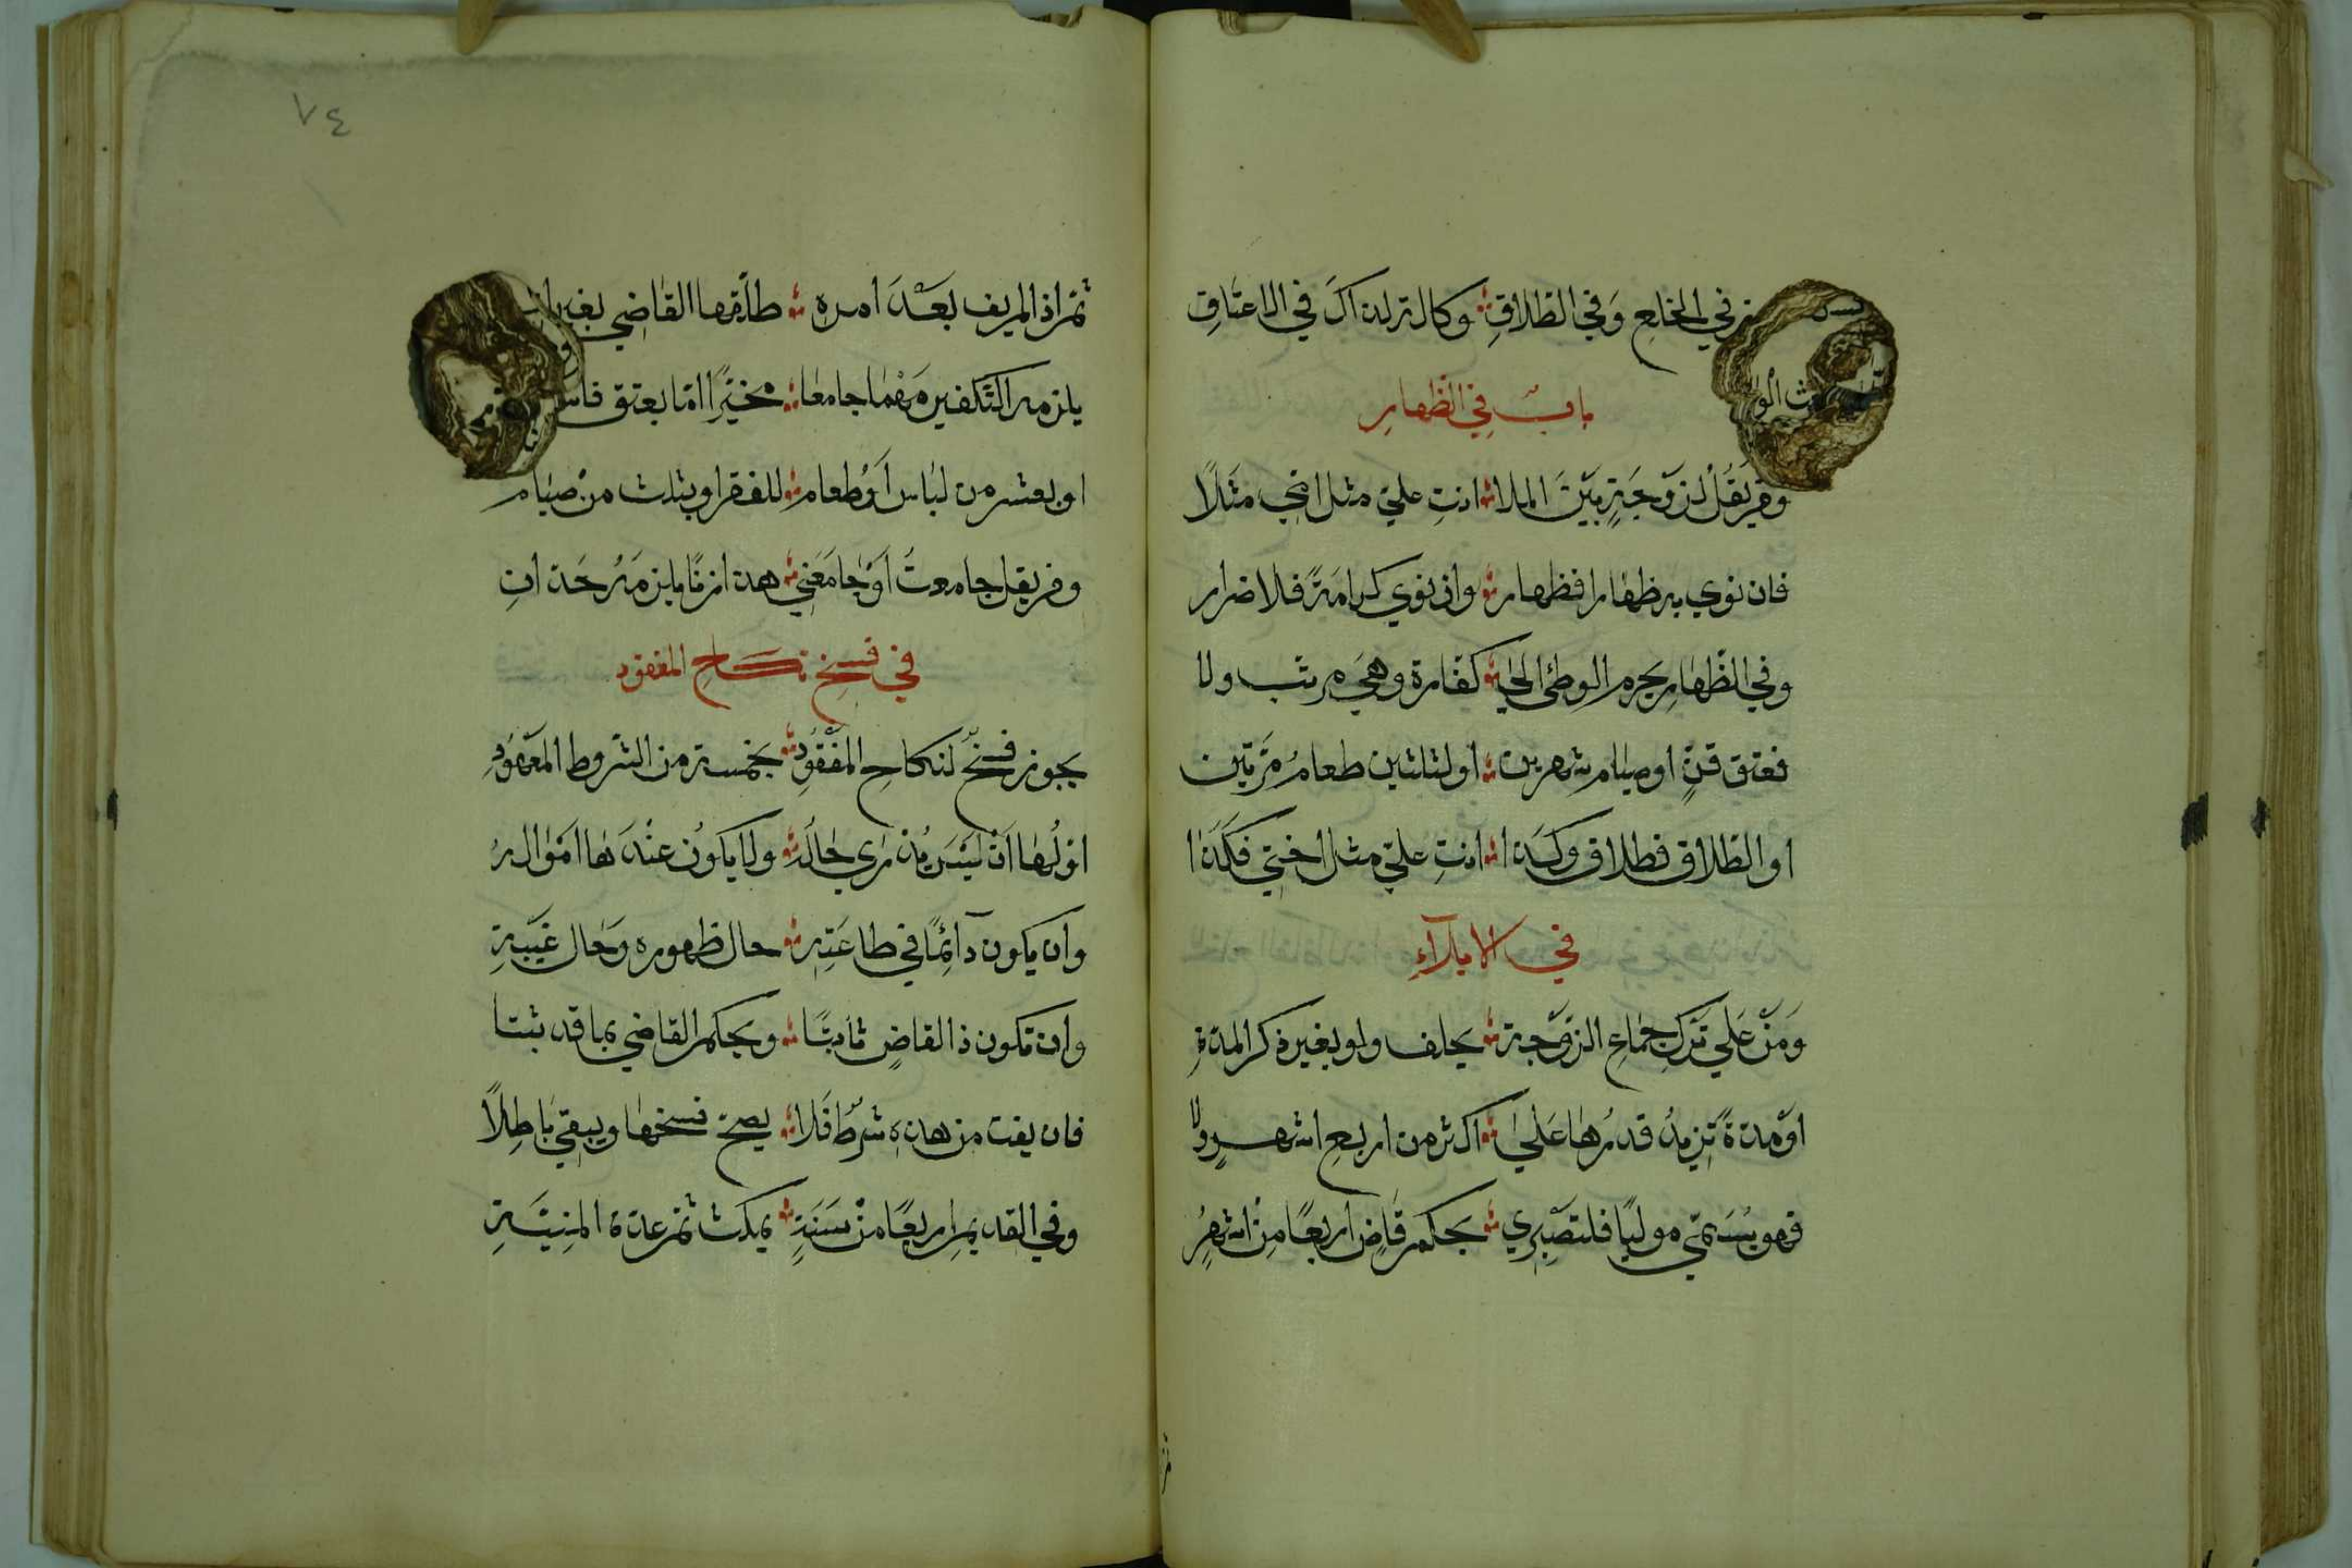 في الخلع وفي الطلاق وكالترلذاك في الاعتاق
باب في الظهار
ومن يقل لزوجة بين الملا انت علي مثل امي مثلا
فان نوي به ظهارا فظهار وان نوي كرامة فلا ضرار
وفي الظهار يحرم الوطئ الي كفارة وهي مرتب ولا
فعتق قن او صيام شهرين او لثلثين طعام مرتين
او الطلاق فطلاق وكذا انت علي مثل اختي فكذا
في الايلآء
وَمَنْ عَلي تَرك جماع الزوجة يحلف ولو بغير ذكر المدة
او مدة تزيد قدرها علي اكثر من اربع اشهر ولا
فهو يسمي موليا فلتصبري بحكم قاض اربعا من اشهر
٧٤
ثم اذ لم يف بعد امره طلقها القاضي بغير
يلزمه التكفير مهما جامعا مخيرا اما بعتق
او بعشر من لباس او طعام للفقرا وبثلث من صيام
ومن يقل جامعت او جامعني هذا زنا يلزمه حد ان
في فسخ نكاح المفقود
يجوز فسخ لنكاح المفقود بخمسة من الشروط المعهود
اولها ان ليس يدري حاله ولا يكون عندها امواله
وان يكون دآئما في طاعته حال ظهوره وحال غيبة
وان تكون ذا القاض ثابتا ويحكم القاضي بما قد ثبتا
فان يفت من هذه شرط فلا يصح فسخها ويبقي باطلا
وفي القديم اربعا من سنة يمكث ثم عدة المنية